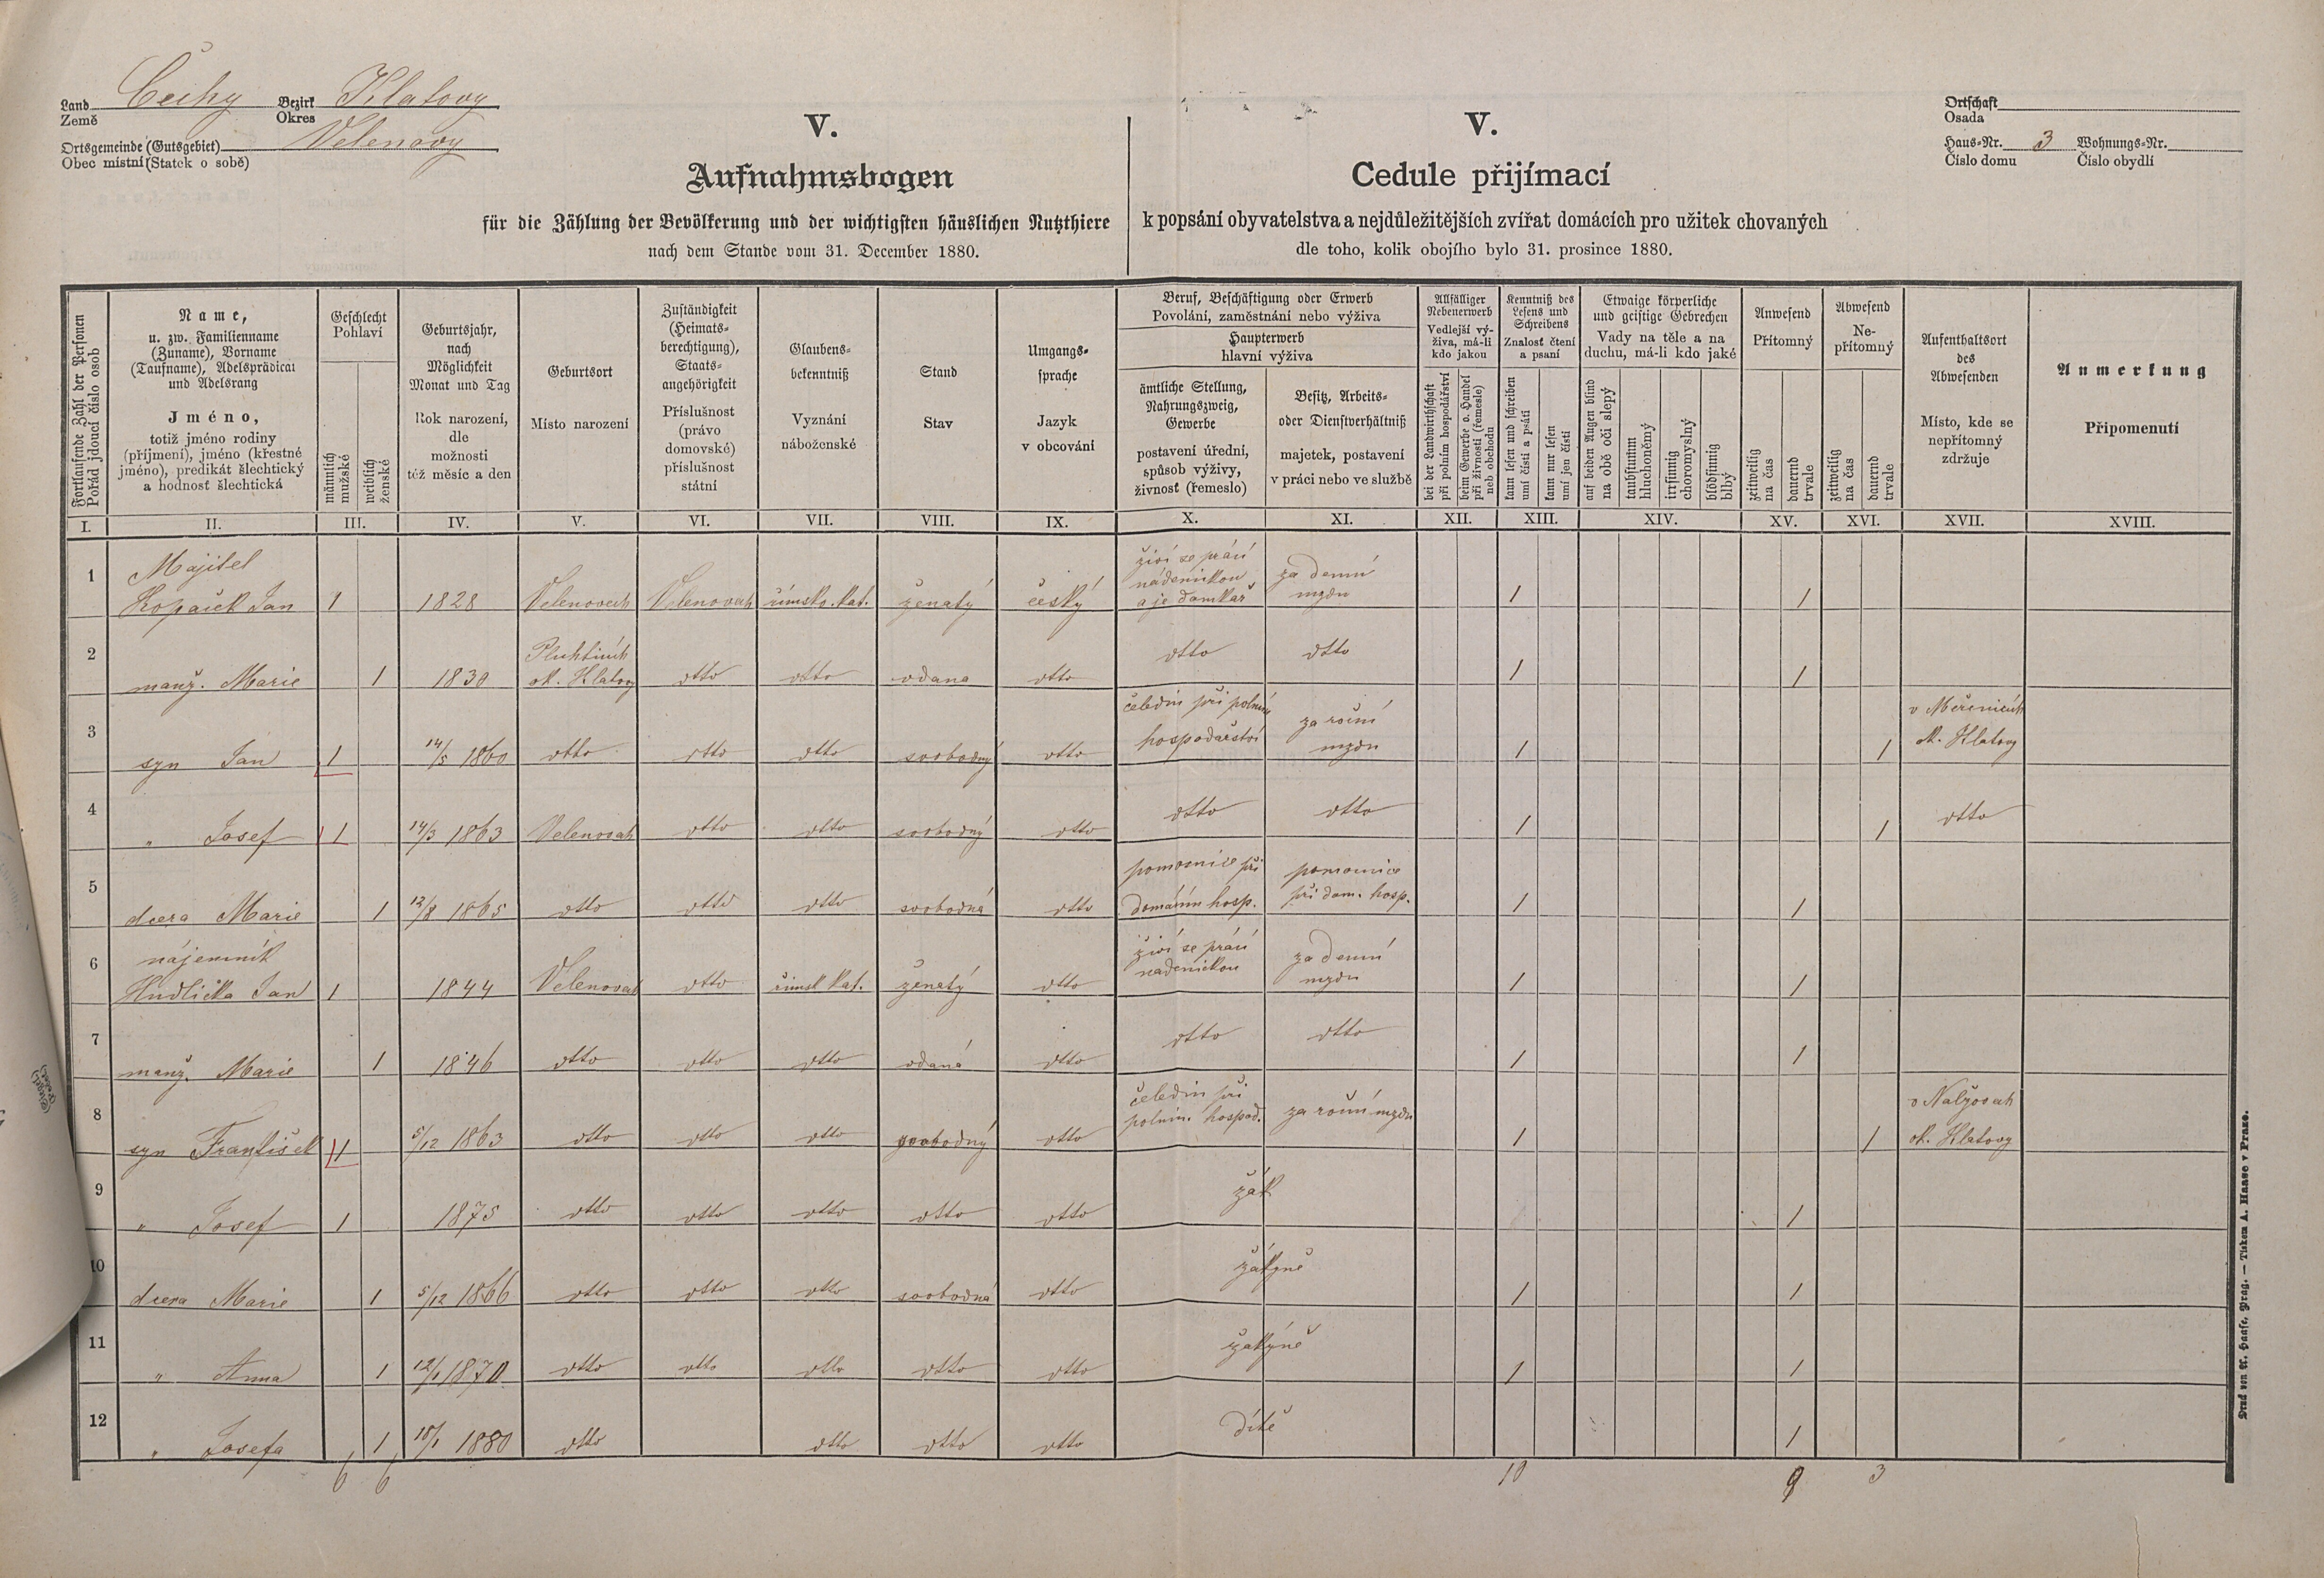 Land Čechy Bezirk Klatovy
Země Okres
Ortsgemeinde (Gutsgebiet) Velenovy
Obec místní (Statek o sobě)
Ortschaft
Osada
Haus-Nr. 3 Wohnungs-Nr.
Číslo domu Číslo obydlí
V.
Aufnahmsbogen
für die Zählung der Bevölkerung und der wichtigsten häuslichen Nutzthiere
nach dem Stande vom 31. December 1880.
V.
Cedule přijímací
k popsání obyvatelstva a nejdůležitějších zvířat domácích pro užitek chovaných
dle toho, kolik obojího bylo 31. prosince 1880.
Fortlaufende Zahl der Personen
Pořád jdoucí číslo osob
Name,
u. zw. Familienname
(Zuname), Vorname
(Taufname), Adelsprädicat
und Adelsrang
Jméno,
totiž jméno rodiny
(příjmení), jméno (křestné
jméno), predikát šlechtický
a hodnost šlechtická
Geschlecht
Pohlaví
männlich
mužské
weiblich
ženské
Geburtsjahr,
nach
Möglichkeit
Monat und Tag
Rok narození,
dle
možnosti
též měsíc a den
Geburtsort
Místo narození
Zuständigkeit
(Heimats-
berechtigung),
Staats-
angehörigkeit
Příslušnost
(právo
domovské)
příslušnost
státní
Glaubens-
bekenntniß
Vyznání
náboženské
Stand
Stav
Umgangs-
sprache
Jazyk
v obcování
Beruf, Beschäftigung oder Erwerb
Povolání, zaměstnání nebo výživa
Haupterwerb
hlavní výživa
ämtliche Stellung,
Nahrungszweig,
Gewerbe
postavení úřední,
spůsob výživy,
živnost (řemeslo)
Besitz, Arbeits-
oder Dienstverhältniß
majetek, postavení
v práci nebo ve službě
Allfälliger
Nebenerwerb
Vedlejší vý-
živa, má-li
kdo jakou
bei der Landwirthschaft
při polním hospodářství
beim Gewerbe o. Handel
při živnosti (řemesle)
neb obchodu
Kenntniß des
Lesens und
Schreibens
Znalost čtení
a psaní
kann lesen und schreiben
umí čísti a psáti
kann nur lesen
umí jen čísti
Etwaige körperliche
und geistige Gebrechen
Vady na těle a na
duchu, má-li kdo jaké
auf beiden Augen blind
na obě oči slepý
taubstumm
hluchoněmý
irrsinnig
choromyslný
blödsinnig
blbý
Anwesend
Přítomný
zeitweilig
na čas
dauernd
trvale
Abwesend
Ne-
přítomný
zeitweilig
na čas
dauernd
trvale
Aufenthaltsort
des
Abwesenden
Místo, kde se
nepřítomný
zdržuje
Anmerkung
Připomenutí
I. II. III. IV. V. VI. VII. VIII. IX. X. XI. XII. XIII. XIV. XV. XVI. XVII. XVIII.
1 Majitel
Kopaček Jan 1 1828 Velenovech Velenovech římsko.kat. ženatý český živí se prácí
nádenickou
a je domkař za denní
mzdu 1 1
2 manž. Marie 1 1830
ok. Klatovy otto otto vdana otto otto otto 1 1
3 syn Jan 1 14/5 1860 otto otto otto svobodný otto čeledín při polním
hospodářství za roční
mzdu 1 1 v Měčeničích
ok. Klatovy
4 " Josef 1 14/3 1863 Velenovech otto otto svobodný otto otto otto 1 1 otto
5 dcera Marie 1 12/8 1865 otto otto otto svobodná otto pomocnice při
domácím hosp. pomocnice
při dom. hosp. 1 1
6 nájemník
Hudlička Jan 1 1844 Velenovech otto římsk kat. ženatý otto živí se prácí
nadenickou za denní
mzdu 1 1
7 manž. Marie 1 1846 otto otto otto vdaná otto otto otto 1 1
8 syn František 1 5/12 1863 otto otto otto svobodný otto čeledín při
polním. hospod. za roční mzdu 1 1 v Nalžovech
ok. Klatovy
9 " Josef 1 1875 otto otto otto otto otto žák 1
10 dcera Marie 1 5/12 1866 otto otto otto svobodná otto žákyně 1 1
11 " Anna 1 12/1 1870 otto otto otto otto otto žákyně 1 1
12 " Josefa 1 18/1 1880 otto otto otto otto dítě 1
6 6 10 9 3
Druck von A. Haase, Prag. — Tiskem A. Haase v Praze.